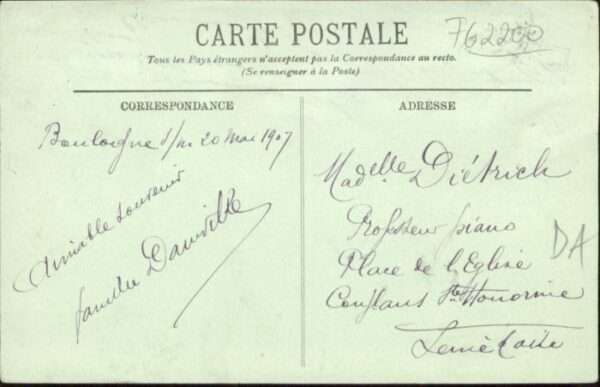 CARTE POSTALE
76220
Tous les Pays étrangers n'acceptent pas la Correspondance au recto.
(Se renseigner à la Poste)
CORRESPONDANCE
Boulogne s/m 20 Mai 1907
Aimable souvenir
famille Dauville
ADRESSE
Madelle Diétrich
Professeur piano
Place de l'Eglise
Conflans Ste Honorine
Seine & Oise
DA